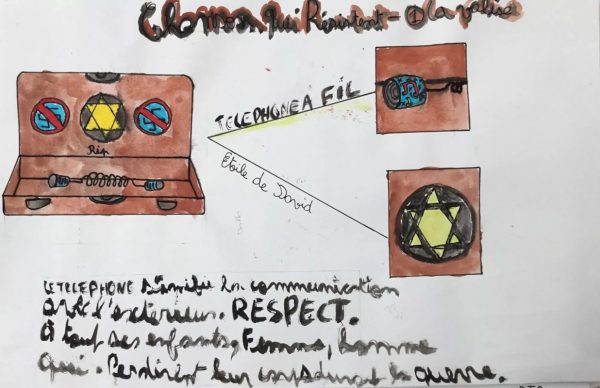 qui Résistent - ① La valise
TELEPHONE A FIL
Etoile de David
Rép
LE TELEPHONE la communication
avec l'exterieur. RESPECT.
à tout ses enfants, Femme, homme
qui. Perdirent leur durant la guerre.